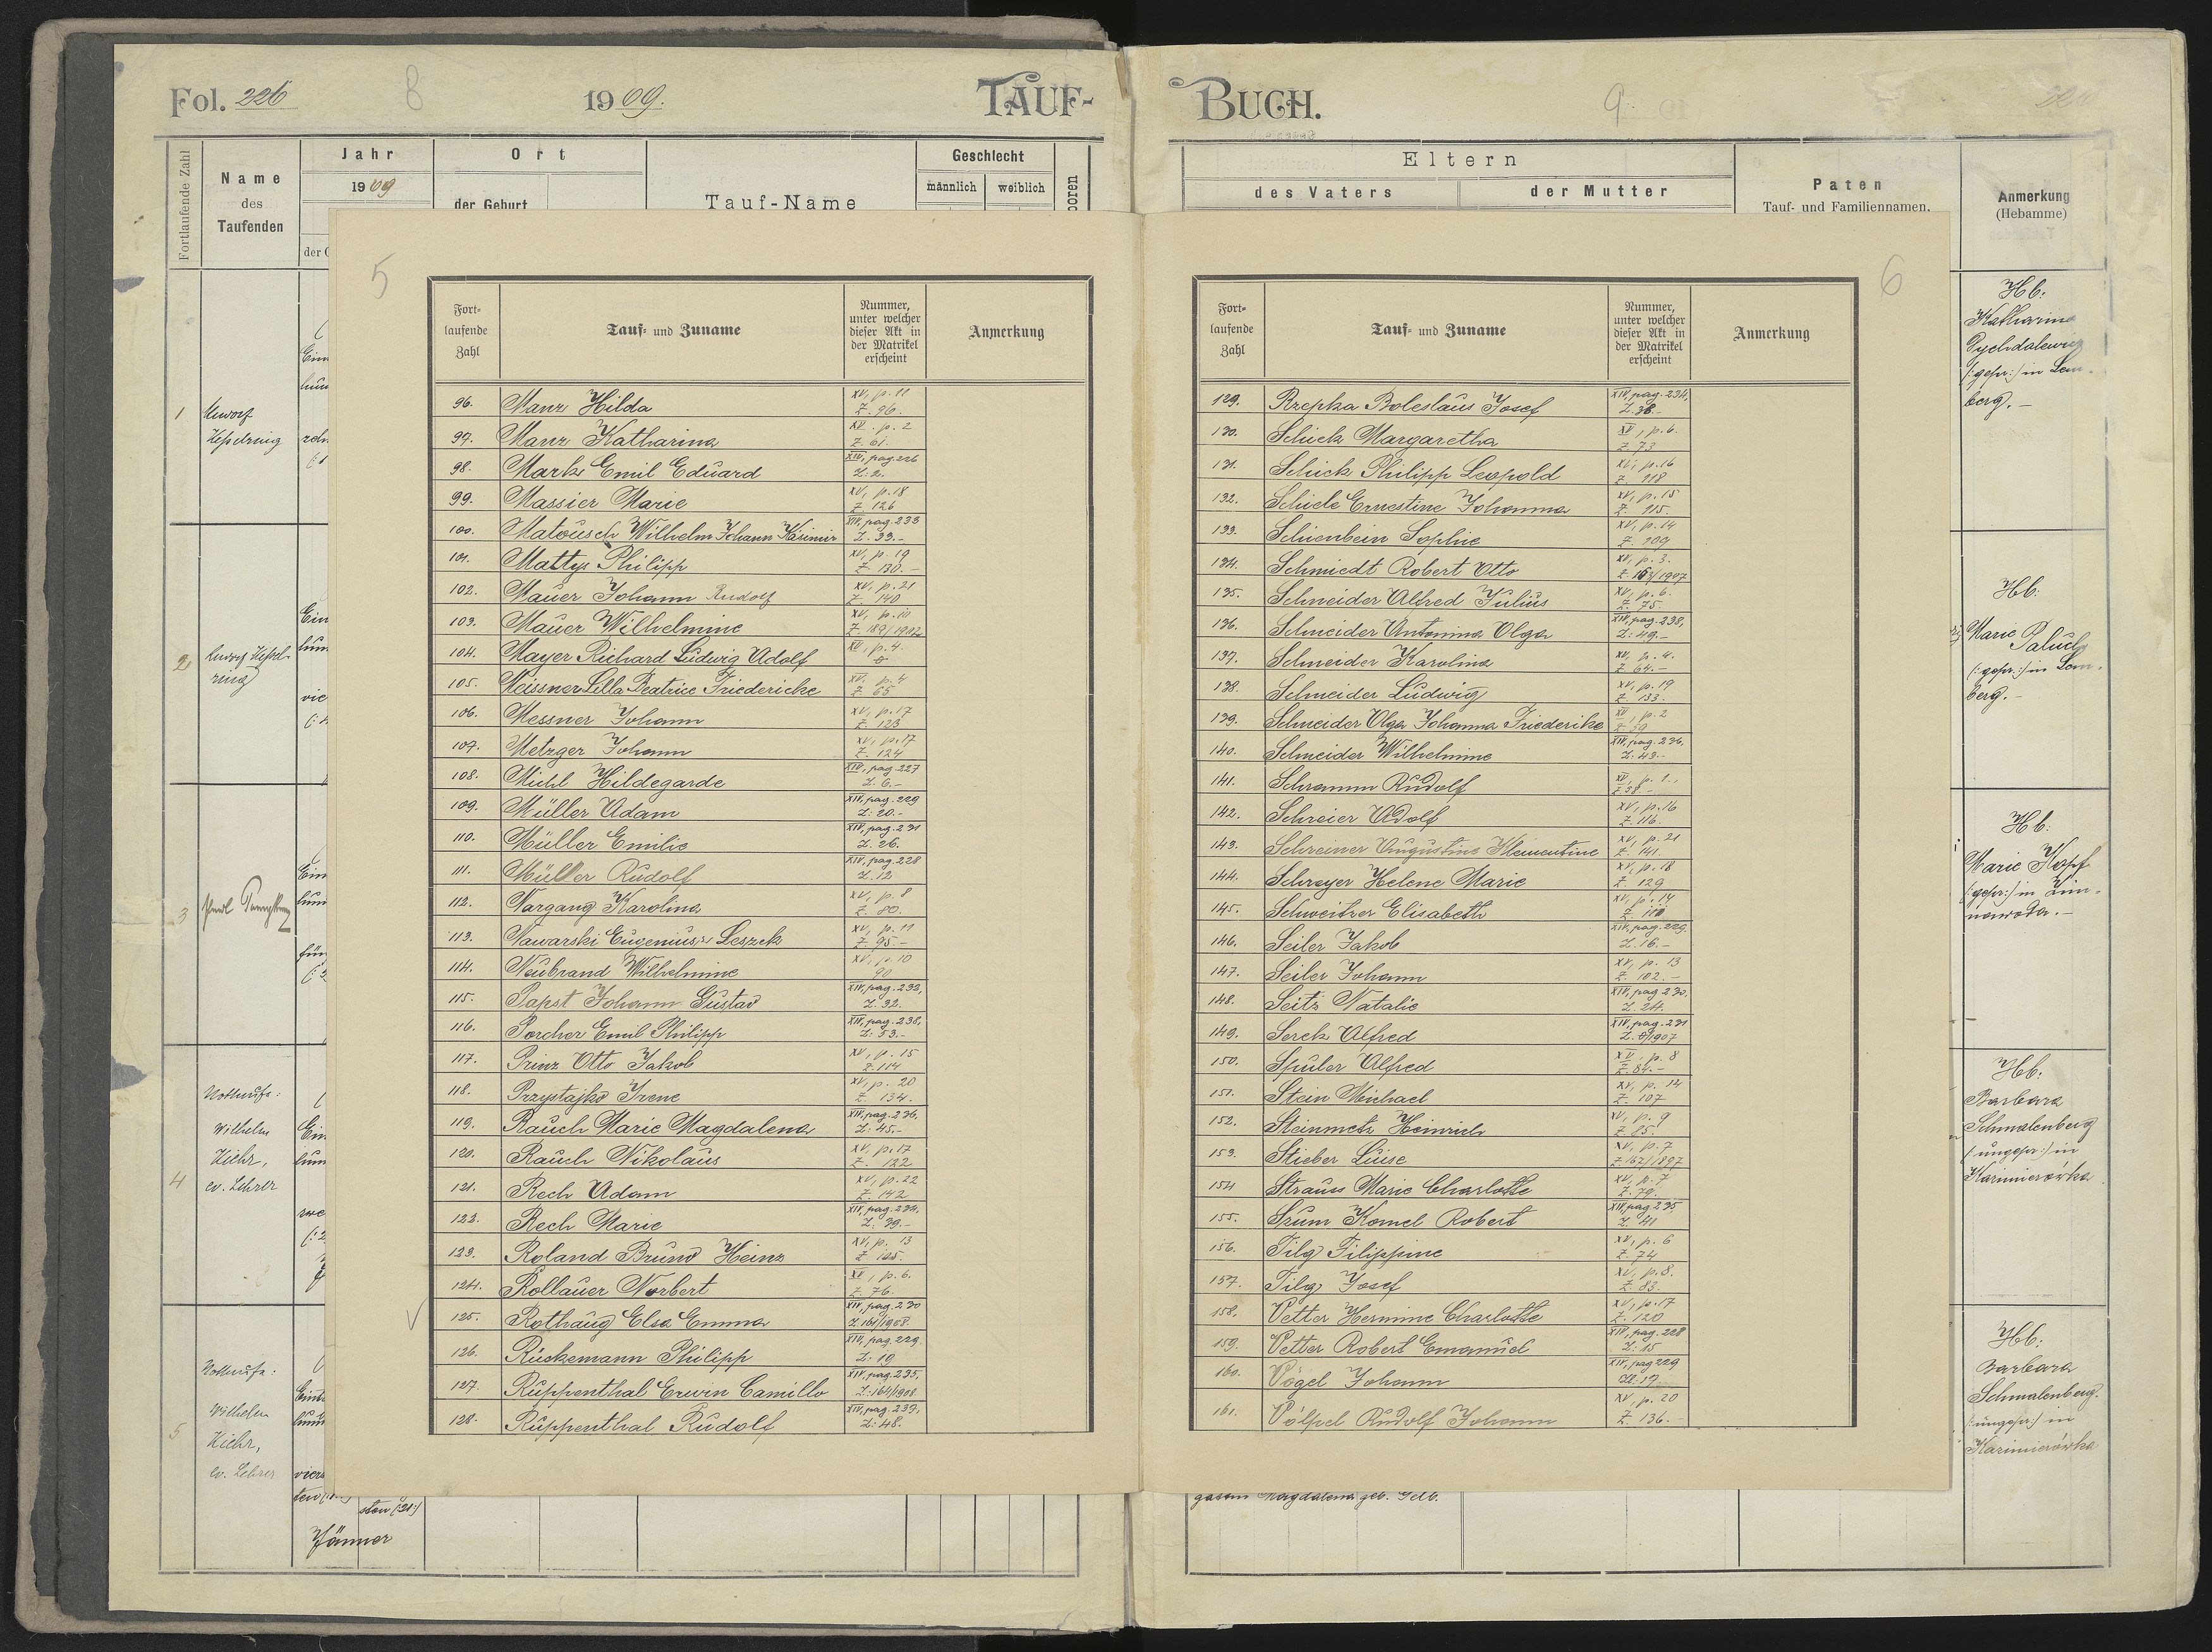 Fol. 226
8
1909.
TAUF-
Fortlaufende Zahl
Name
des
Taufenden
Jahr
1909
Ort
der Geburt
Tauf-Name
Geschlecht
männlich
weiblich
1
2
3
4
Wilhelm
ev. Lehrer
5
Wilhelm
ev. Lehrer
Jänner
5
Fort-
laufende
Zahl
Tauf- und Zuname
Nummer,
unter welcher
dieser Akt in
der Matrikel
erscheint
Anmerkung
96. Manz Hilda XV, p. 11 Z. 96.
97. Manz Katharina XV. p. 2 Z. 61.
98. Mark Emil Eduard XIV, pag. 226 Z. 2.
99. Massier Marie XV, p. 18 Z. 126
100. Matousch Wilhelm Johann Kasimir XIV, pag. 233 Z. 33.-
101. Mattys Philipp XV, p. 19 Z. 130.-
102. Mauer Johann Rudolf XV, p. 21 Z. 140
103. Mauer Wilhelmine XV, p. 10
104. Mayer Richard Ludwig Adolf XV, p. 4.
105. Meissner Lilla Beatrice Friedericke XV, p. 4 Z. 65
106. Messner Johann XV, p. 17 Z. 123
107. Metzger Johann XV, p. 17 Z. 124
108. Michl Hildegarde XIV, pag. 227 Z. 6.-
109. Müller Adam XIV, pag. 229 Z: 20.-
110. Müller Emilie XIV, pag. 231 Z. 26.
111. Müller Rudolf XIV, pag. 228 Z. 12
112. Nargang Karolina XV, p. 8 Z. 80.
113. Nawarski Eugenius Leszek XV, p. 11 Z. 95-
114. Neubrand Wilhelmine XV, p. 10 90
115. Papst Johann Gustav XIV, pag. 233, Z. 32.
116. Porcher Emil Philipp XIV, pag. 238, Z: 53.-
117. Prinz Otto Jakob XV, p. 15 Z. 114
118. Przystajko Irene XV, p. 20 Z. 134.
119. Rauch Marie Magdalena XIV, pag. 236, Z: 45.-
120. Rauch Nikolaus XV, p. 17 Z. 122
121. Rech Adam XV, p. 22 Z. 142
122. Rech Marie XIV, pag. 234, Z. 39.-
123. Roland Bruno Heinz XV, p. 13 Z. 105.
124. Rollauer Norbert XV, p. 6. Z. 76.
125. Rothaug Elsa Emma XIV, pag. 230 Z. 161/1908
126. Rückemann Philipp XIV, pag. 229. Z: 19
127. Ruppenthal Erwin Camillo XIV, pag. 235, Z: 164/1908
128. Ruppenthal Rudolf XIV, pag. 237, Z: 48.
BUCH.
9.
Eltern
des Vaters
der Mutter
Paten
Tauf- und Familiennamen,
Anmerkung
(Hebamme)
6
Fort-
laufende
Zahl
Tauf- und Zuname
Nummer,
unter welcher
dieser Akt in
der Matrikel
erscheint
Anmerkung
129. Rzepka Boleslaus Josef XIV, pag. 234, Z. 38.-
130. Schick Margaretha XV, p. 6. Z. 73
131. Schick Philipp Leopold XV, p. 16 Z. 118
132. Schiele Ernestine Johanna XV, p. 15 Z. 115.
133. Schienbein Sophie XV, p. 14 Z. 109
134. Schmiedt Robert Otto XV, p. 3.
135. Schneider Alfred Julius XV, p. 6. Z. 75.
136. Schneider Antonina Olga XIV, pag. 238, Z: 49.-
137. Schneider Karolina XV, p. 4. Z. 64.-
138. Schneider Ludwig XV, p. 19 Z. 133.
139. Schneider Olga Johanna Friederike XV, p. 2 Z. 59
140. Schneider Wilhelmine XIV, pag. 236, Z: 43.-
141. Schramm Rudolf XV, p. 1. Z. 58.-
142. Schreier Adolf XV, p. 16 Z. 116.
143. Schreiner Augustine Klementine XV, p. 21 Z. 141.
144. Schreyer Helene Marie XV, p. 18 Z. 129
145. Schweitzer Elisabeth XV, p. 14 Z. 110
146. Seiler Jakob XIV, pag. 229. Z. 16.-
147. Seiler Johann XV, p. 13 Z. 102.-
148. Seitz Natalie XIV, pag. 230, Z. 24.
149. Serck Alfred XIV, pag. 231
150. Spuler Alfred XV, p. 8 Z. 84.-
151. Stein Michael XV, p. 14 Z. 107
152. Steinmetz Heinrich XV, p. 9 Z. 85
153. Stieber Luise XV, p. 7 Z. 162/1897
154. Strauss Marie Charlotte XV, p. 7 Z. 79.
155. Szum Kornel Robert XIV, pag 235 Z. 41
156. Tilg Filippine XV, p. 6 Z. 74
157. Tilg Josef XV, p. 8. Z. 83.
158. Vetter Hermine Charlotte XV, p. 17 Z. 120
159. Vetter Robert Emanuel XIV, pag. 228 Z: 15
160. Vogel Johann XIV, pag 229 17
161. Völpel Rudolf Johann XV, p. 20 Z. 136.-
Hb:
Katharina
(:gepr:) in Lem-
berg.-
Hb:
Marie Paluch
(:gepr:) in Lem-
berg.-
Hb:
Marie Kopf
(:gepr:) in Zim-
nawoda.-
Hb:
Barbara
Schmalenberg
(:ungepr:) in
Kazimierówka
Hb:
Barbara
Schmalenberg
(:ungepr:) in
Kazimierówka
Magdalena geb.